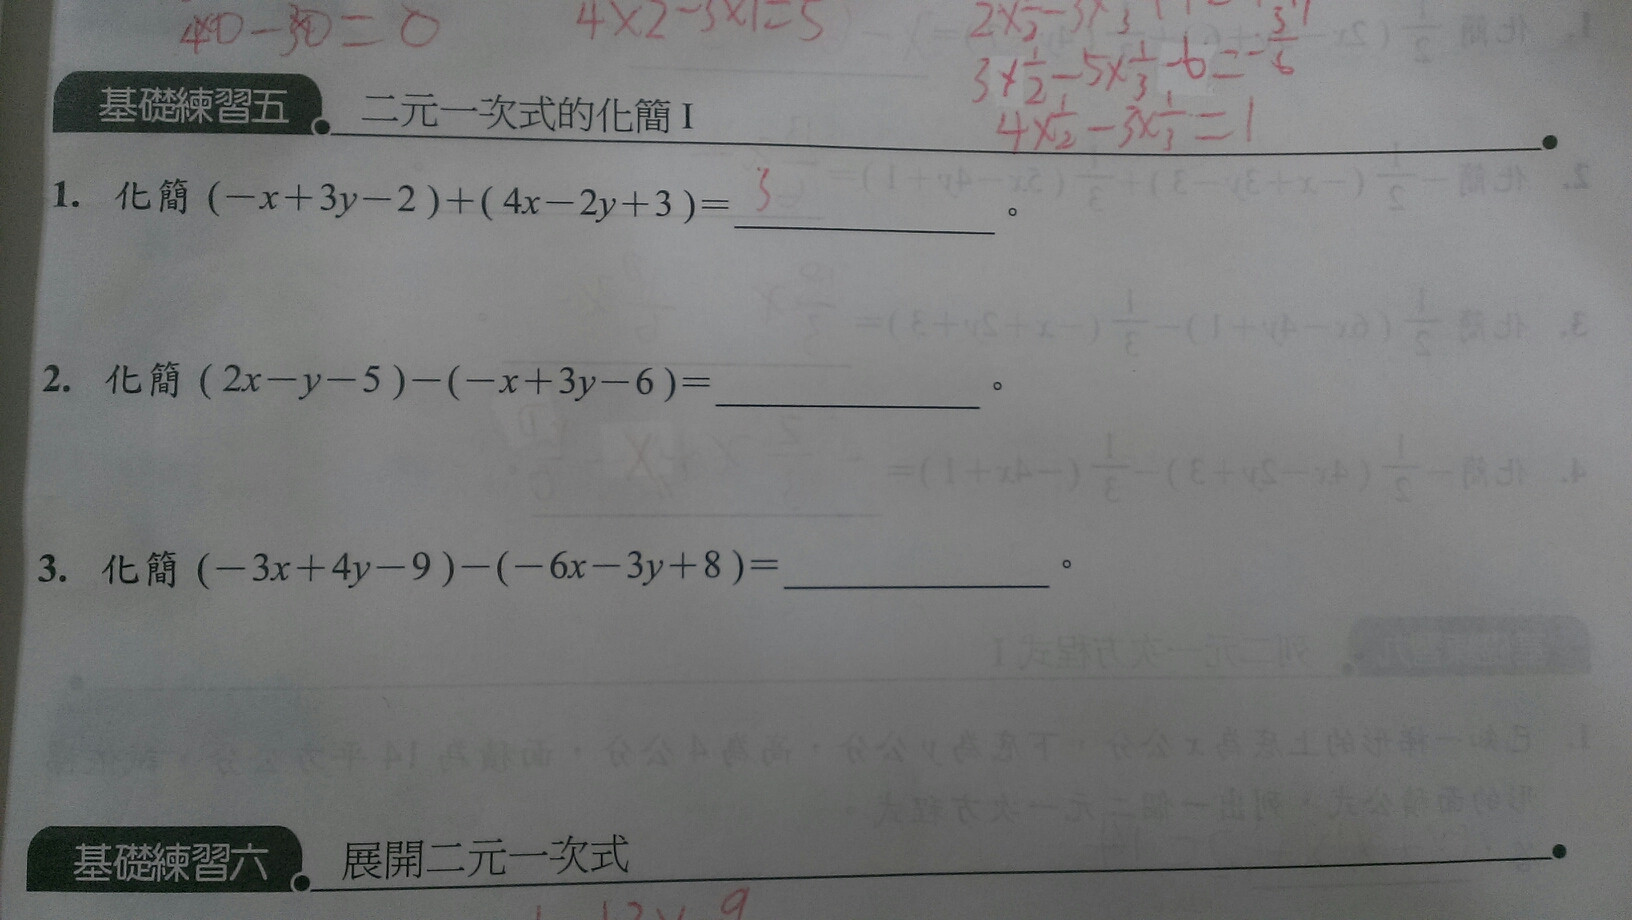 40-30=0
4×2-3×1=5
3×1/2-5×1/3-6=-
4×1/2-3×1/3=1
基礎練習五 二元一次式的化簡I
1. 化簡(-x+3y-2)+(4x-2y+3)=3。
2. 化簡(2x-y-5)-(-x+3y-6)=。
3. 化簡(-3x+4y-9)-(-6x-3y+8)=。
基礎練習六 展開二元一次式